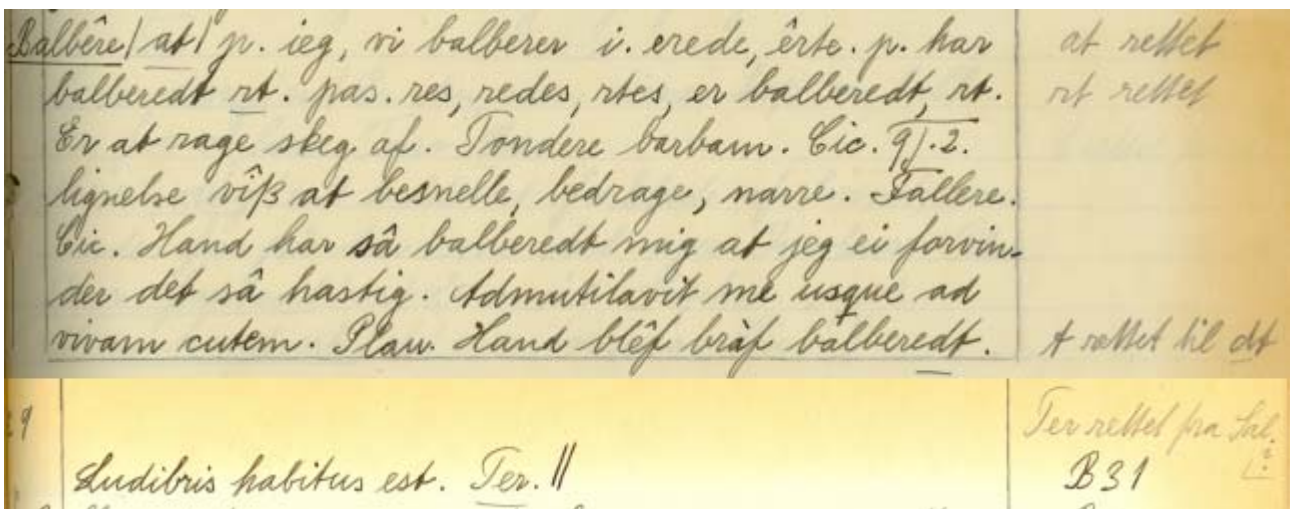 Balbêre/ at/ p. ieg, vi balberer i. erede, êrte. p. har at rettet
balberedt rt. pas. res, redes, rtes, er balberedt, rt. rt rettet
Er at rage skeg af. Tondere barbam. Cic. 9J.2.
lignelse vîß at besnelle, bedrage, narre. Fallere.
Cic. Hand har sâ balberedt mig at jeg ei forvin-
der det sâ hastig. Admutilavit me usque ad
vivam cutem. Plau. Hand blêf brâf balberedt. t rettet til dt
9 Ter rettet fra Sal.
Ludibris habitus est. Ter. || B31